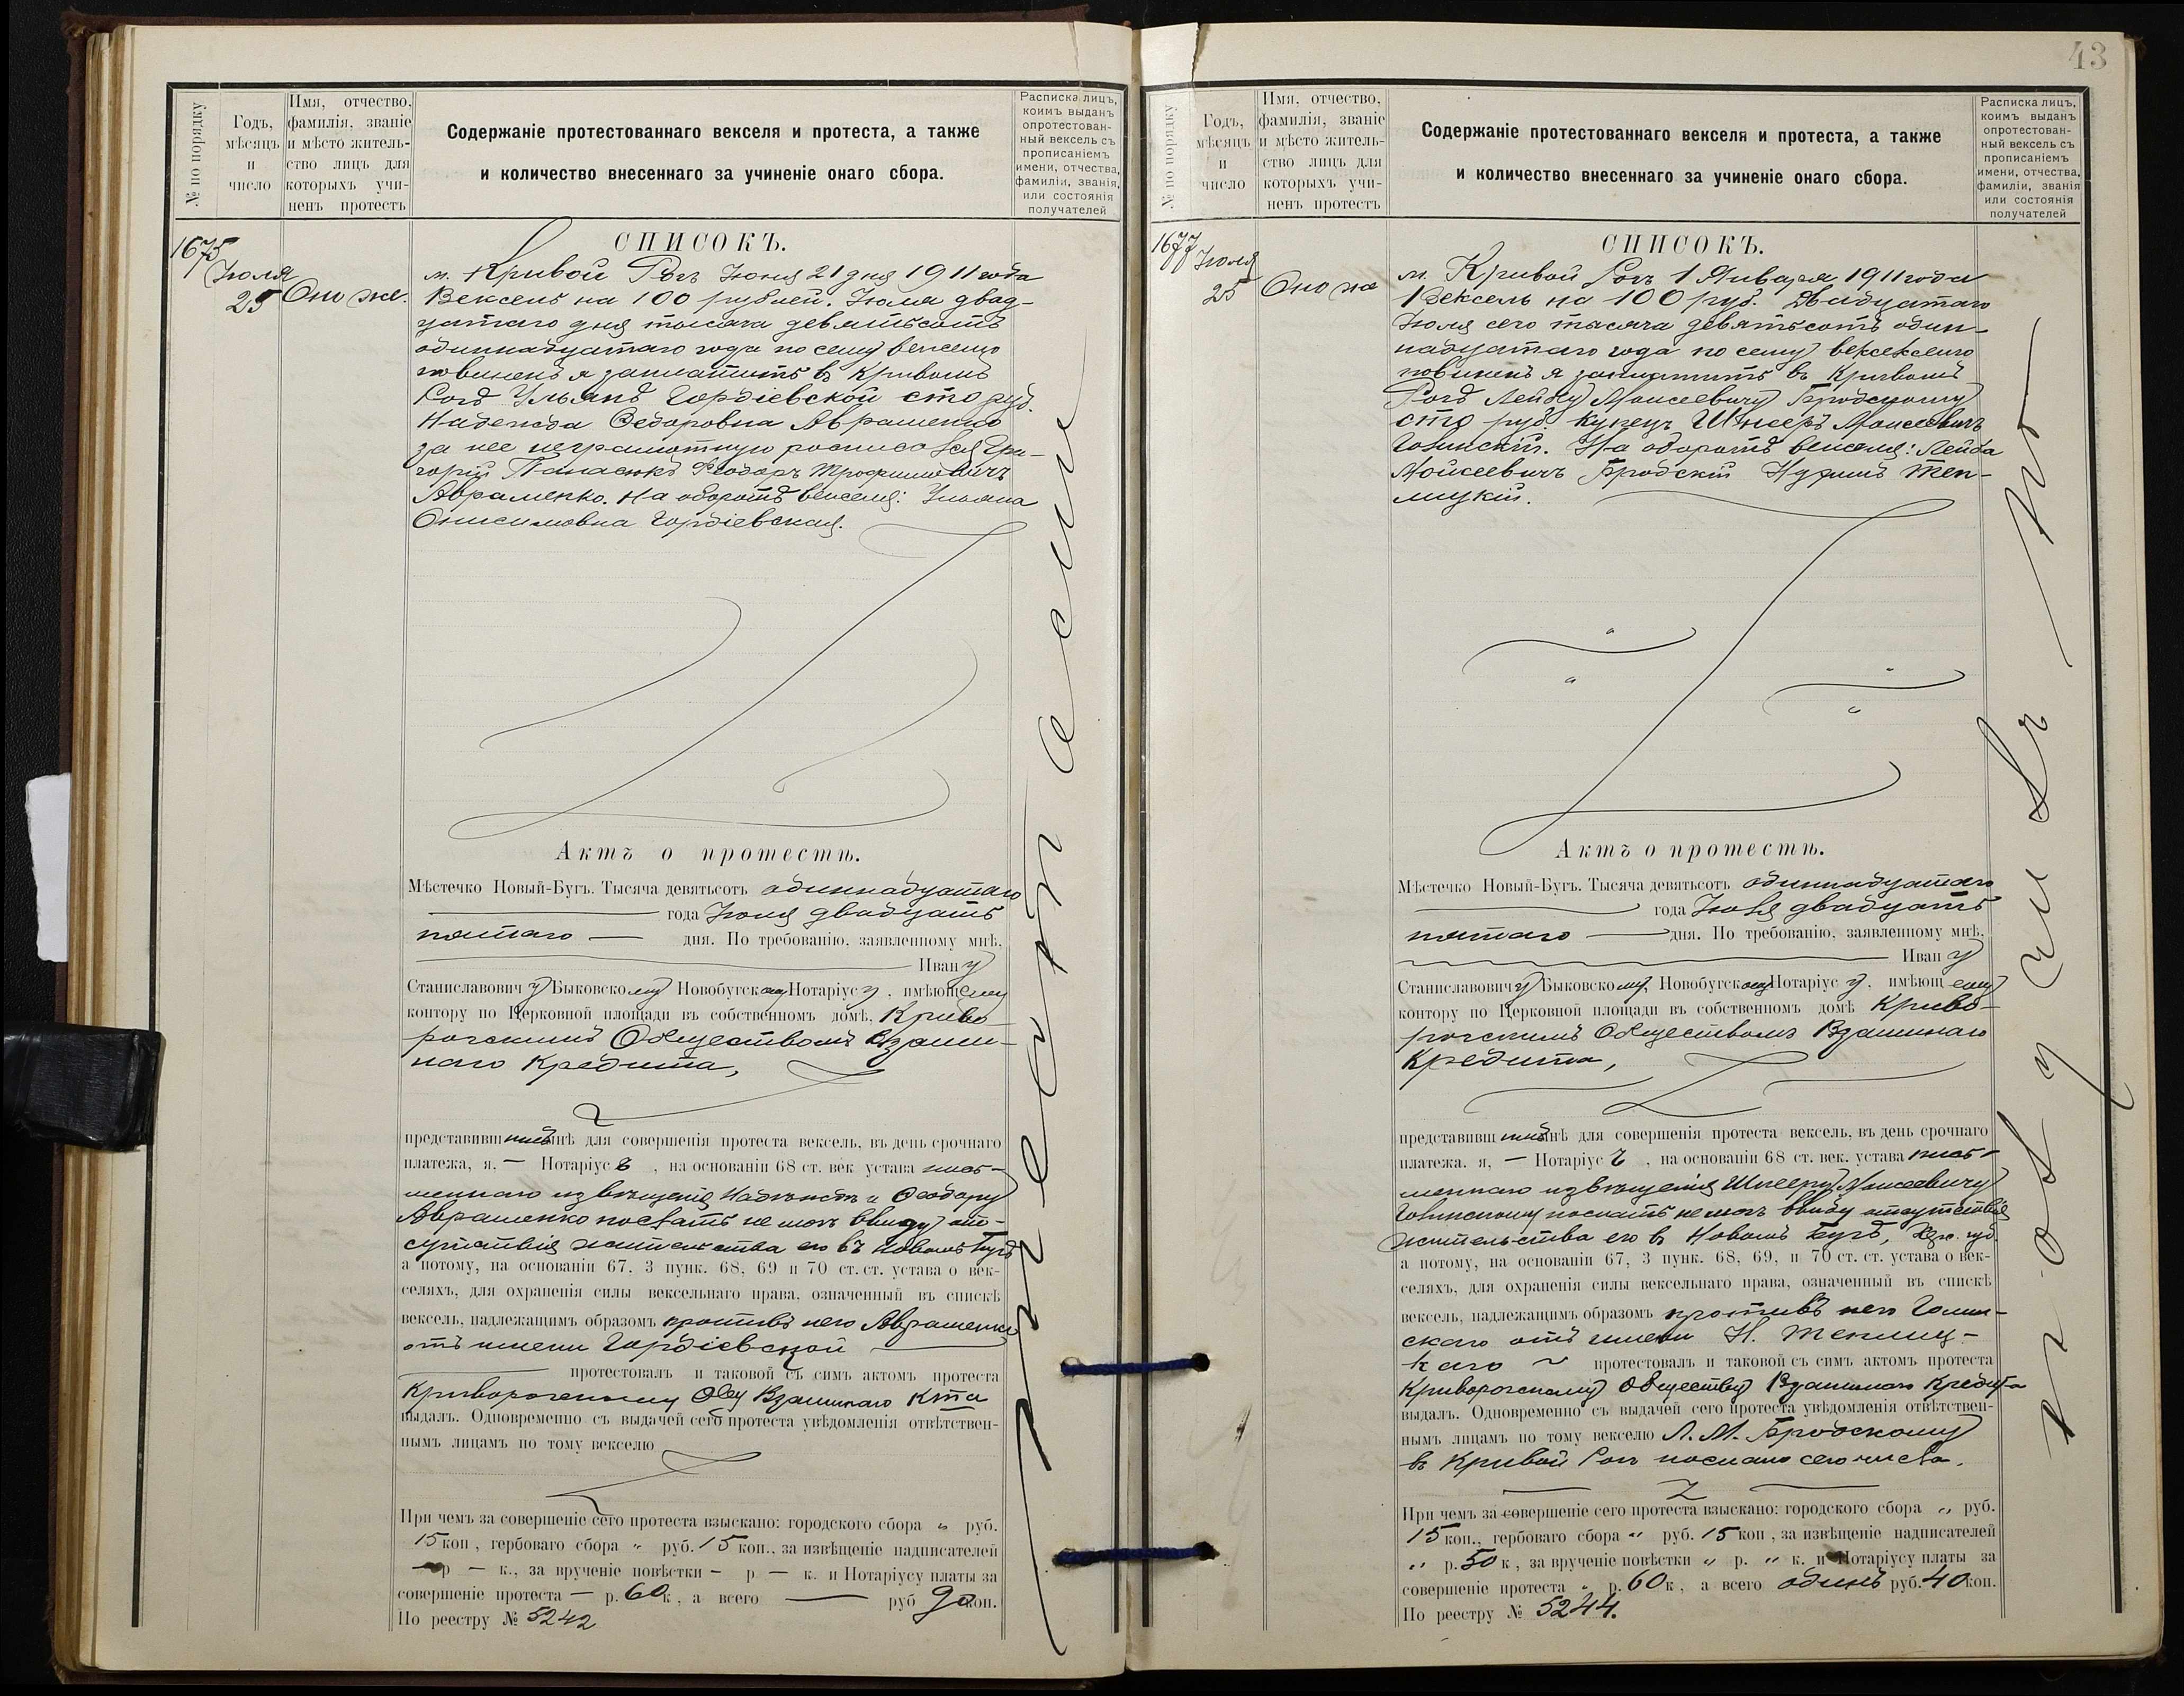 № по порядку
Годъ,
мѣсяцъ
и
число
Имя, отчество,
фамилія, званіе
и мѣсто житель-
ство лицъ для
которыхъ учи-
ненъ протестъ
Содержаніе протестованнаго векселя и протеста, а также
и количество внесеннаго за учиненіе онаго сбора.
Расписка лицъ,
коимъ выданъ
опротестован-
ный вексель съ
прописаніемъ
имени, отчества,
фамиліи, званія,
или состоянія
получателей
1675
Іюля
25
Оно же.
СПИСОКЪ.
м. Кривой Рогъ Іюня 21 дня 1911 года
Вексель на 100 рублей. Іюля двад-
цатаго дня тысяча девятьсотъ
одиннадцатаго года по сему векселю
повиненъ я заплатить въ Кривомъ
Рогѣ Ульянѣ Гордіевской сто руб.
Надежда Ѳедоровна Авраменко
за нее неграмотную росписался Гри-
горій Панасюкъ Ѳеодоръ Трофимовичъ
Авраменко. На оборотѣ векселя: Ульяна
Онисимовна Гордіевская.
Актъ о протестѣ.
Мѣстечко Новый-Бугъ. Тысяча девятьсотъ одиннадцатаго
года Іюля двадцать
пятаго — дня. По требованію, заявленному мнѣ,
Ивану
Станиславовичу Быковскому Новобугскому Нотаріусу, имѣющему
контору по Церковной площади въ собственномъ домѣ, Криво-
рогскимъ Обществомъ Взаим-
наго Кредита,
представившимъ мнѣ для совершенія протеста вексель, въ день срочнаго
платежа, я, — Нотаріусъ, на основаніи 68 ст. век устава пись-
меннаго извѣщенія Надеждѣ и Ѳеодору
Авраменко послать не могъ ввиду от-
сутствія жительства его въ Новомъ Бугѣ
а потому, на основаніи 67, 3 пунк. 68, 69 и 70 ст. ст. устава о век-
селяхъ, для охраненія силы вексельнаго права, означенный въ спискѣ
вексель, надлежащимъ образомъ противъ него Авраменко
отъ имени Гордіевской
протестовалъ и таковой съ симъ актомъ протеста
Криворогскому Общ Взаимнаго Кта
выдалъ. Одновременно съ выдачей сего протеста увѣдомленія отвѣтствен-
нымъ лицамъ по тому векселю
При чемъ за совершеніе сего протеста взыскано: городского сбора „ руб.
15 коп, гербоваго сбора „ руб. 15 коп., за извѣщеніе надписателей
— р — к., за врученіе повѣстки — р — к. и Нотаріусу платы за
совершеніе протеста — р. 60 к, а всего — руб 90 коп.
По реестру № 5242
43
№ по порядку
Годъ,
мѣсяцъ
и
число
Имя, отчество,
фамилія, званіе
и мѣсто житель-
ство лицъ для
которыхъ учи-
ненъ протестъ
Содержаніе протестованнаго векселя и протеста, а также
и количество внесеннаго за учиненіе онаго сбора.
Расписка лицъ,
коимъ выданъ
опротестован-
ный вексель съ
прописаніемъ
имени, отчества,
фамиліи, званія
или состоянія
получателей
1677
Іюля
25
Оно же
СПИСОКЪ.
м. Кривой Рогъ 1 Января 1911 года
Вексель на 100 руб. Двадцатаго
Іюля сего тысяча девятьсотъ один-
надцатаго года по сему векселю
повиненъ я заплатить въ Кривомъ
Рогѣ Лейбу Моисеевичу Бродскому
сто руб. Купецъ Моисеевичъ
На оборотѣ векселя: Лейба
Мойсеевичъ Бродскій Теп-
лицкій.
Актъ о протестѣ.
Мѣстечко Новый-Бугъ. Тысяча девятьсотъ одиннадцатаго
года Іюля двадцать
пятаго — дня. По требованію, заявленному мнѣ,
Ивану
Станиславовичу Быковскому, Новобугскому Нотаріусу, имѣющему
контору по Церковной площади въ собственномъ домѣ Криво-
рогскимъ Обществомъ Взаимнаго
Кредита,
представившимъ мнѣ для совершенія протеста вексель, въ день срочнаго
платежа. я, — Нотаріусъ, на основаніи 68 ст. век. устава пись-
меннаго извѣщенія Моисеевичу
послать не могъ ввиду отсутствія
жительства его въ Новомъ Бугѣ, Хер. губ.
а потому, на основаніи 67, 3 пунк. 68, 69, и 70 ст. ст. устава о век-
селяхъ, для охраненія силы вексельнаго права, означенный въ спискѣ
вексель, надлежащимъ образомъ противъ него
скаго отъ имени Н. Теплиц-
каго протестовалъ и таковой съ симъ актомъ протеста
Криворогскому Обществу Взаимнаго Кредита
выдалъ. Одновременно съ выдачей сего протеста увѣдомленія отвѣтствен-
нымъ лицамъ по тому векселю Л. М. Бродскому
въ Кривой Рогъ послано сего числа.
При чемъ за совершеніе сего протеста взыскано: городского сбора „ руб.
15 коп., гербоваго сбора „ руб. 15 коп, за извѣщеніе надписателей
„ р. 50 к, за врученіе повѣстки „ р. „ к. и Нотаріусу платы за
совершеніе протеста „ р. 60 к, а всего одинъ руб. 40 коп.
По реестру № 5244.